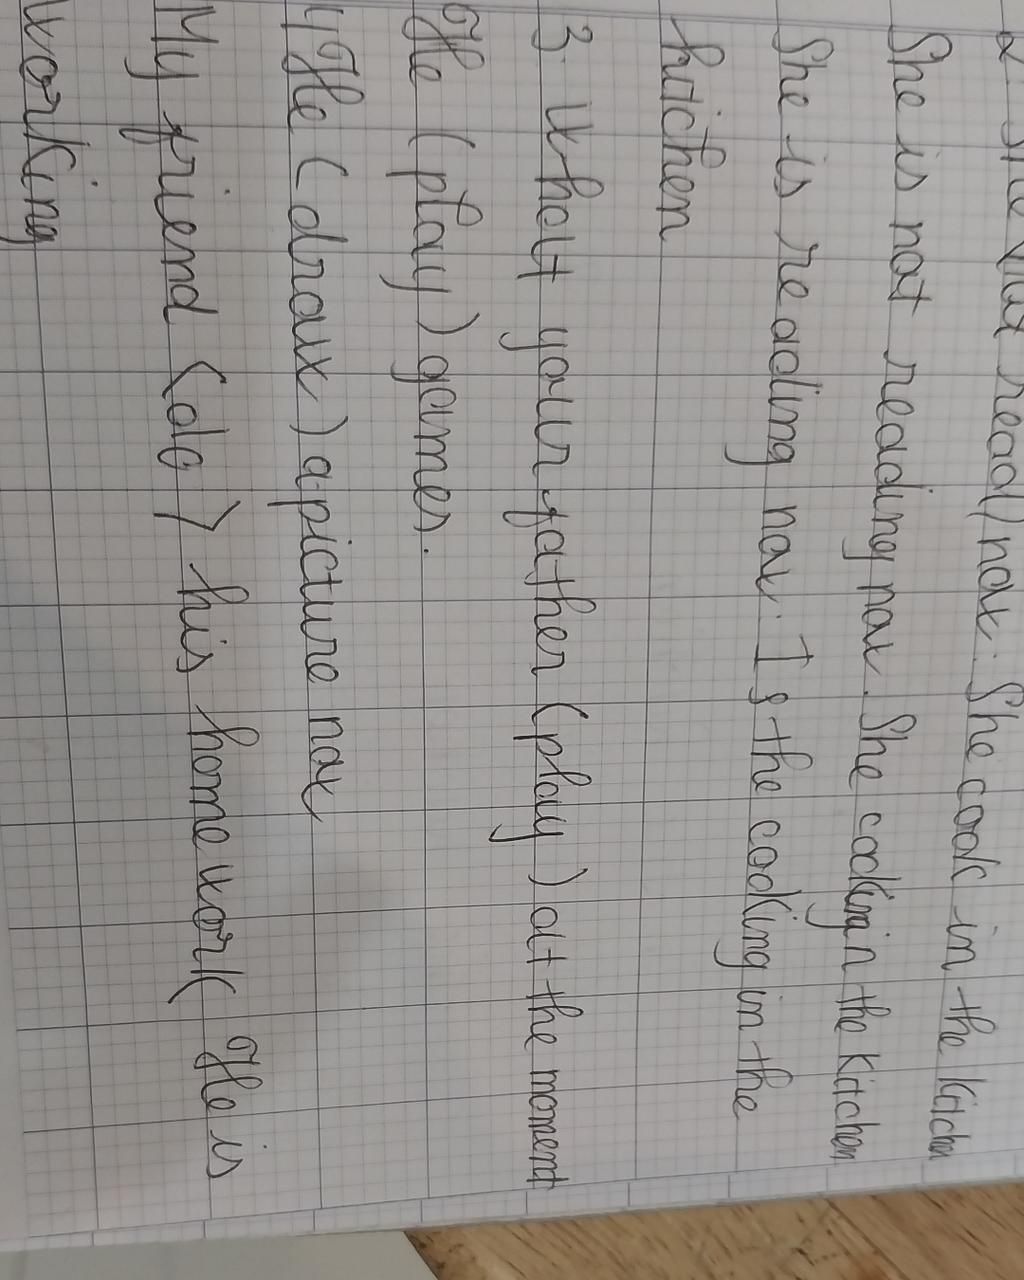 2 She not read/now. She cook in the kitchen
She is not reading now. She cooking in the kitchen
She is reading now. Is the cooking in the
kitchen
3. What your father (play) at the moment
He (play) games.
4 He (draw) a picture now
My friend (do) his homework He is
working